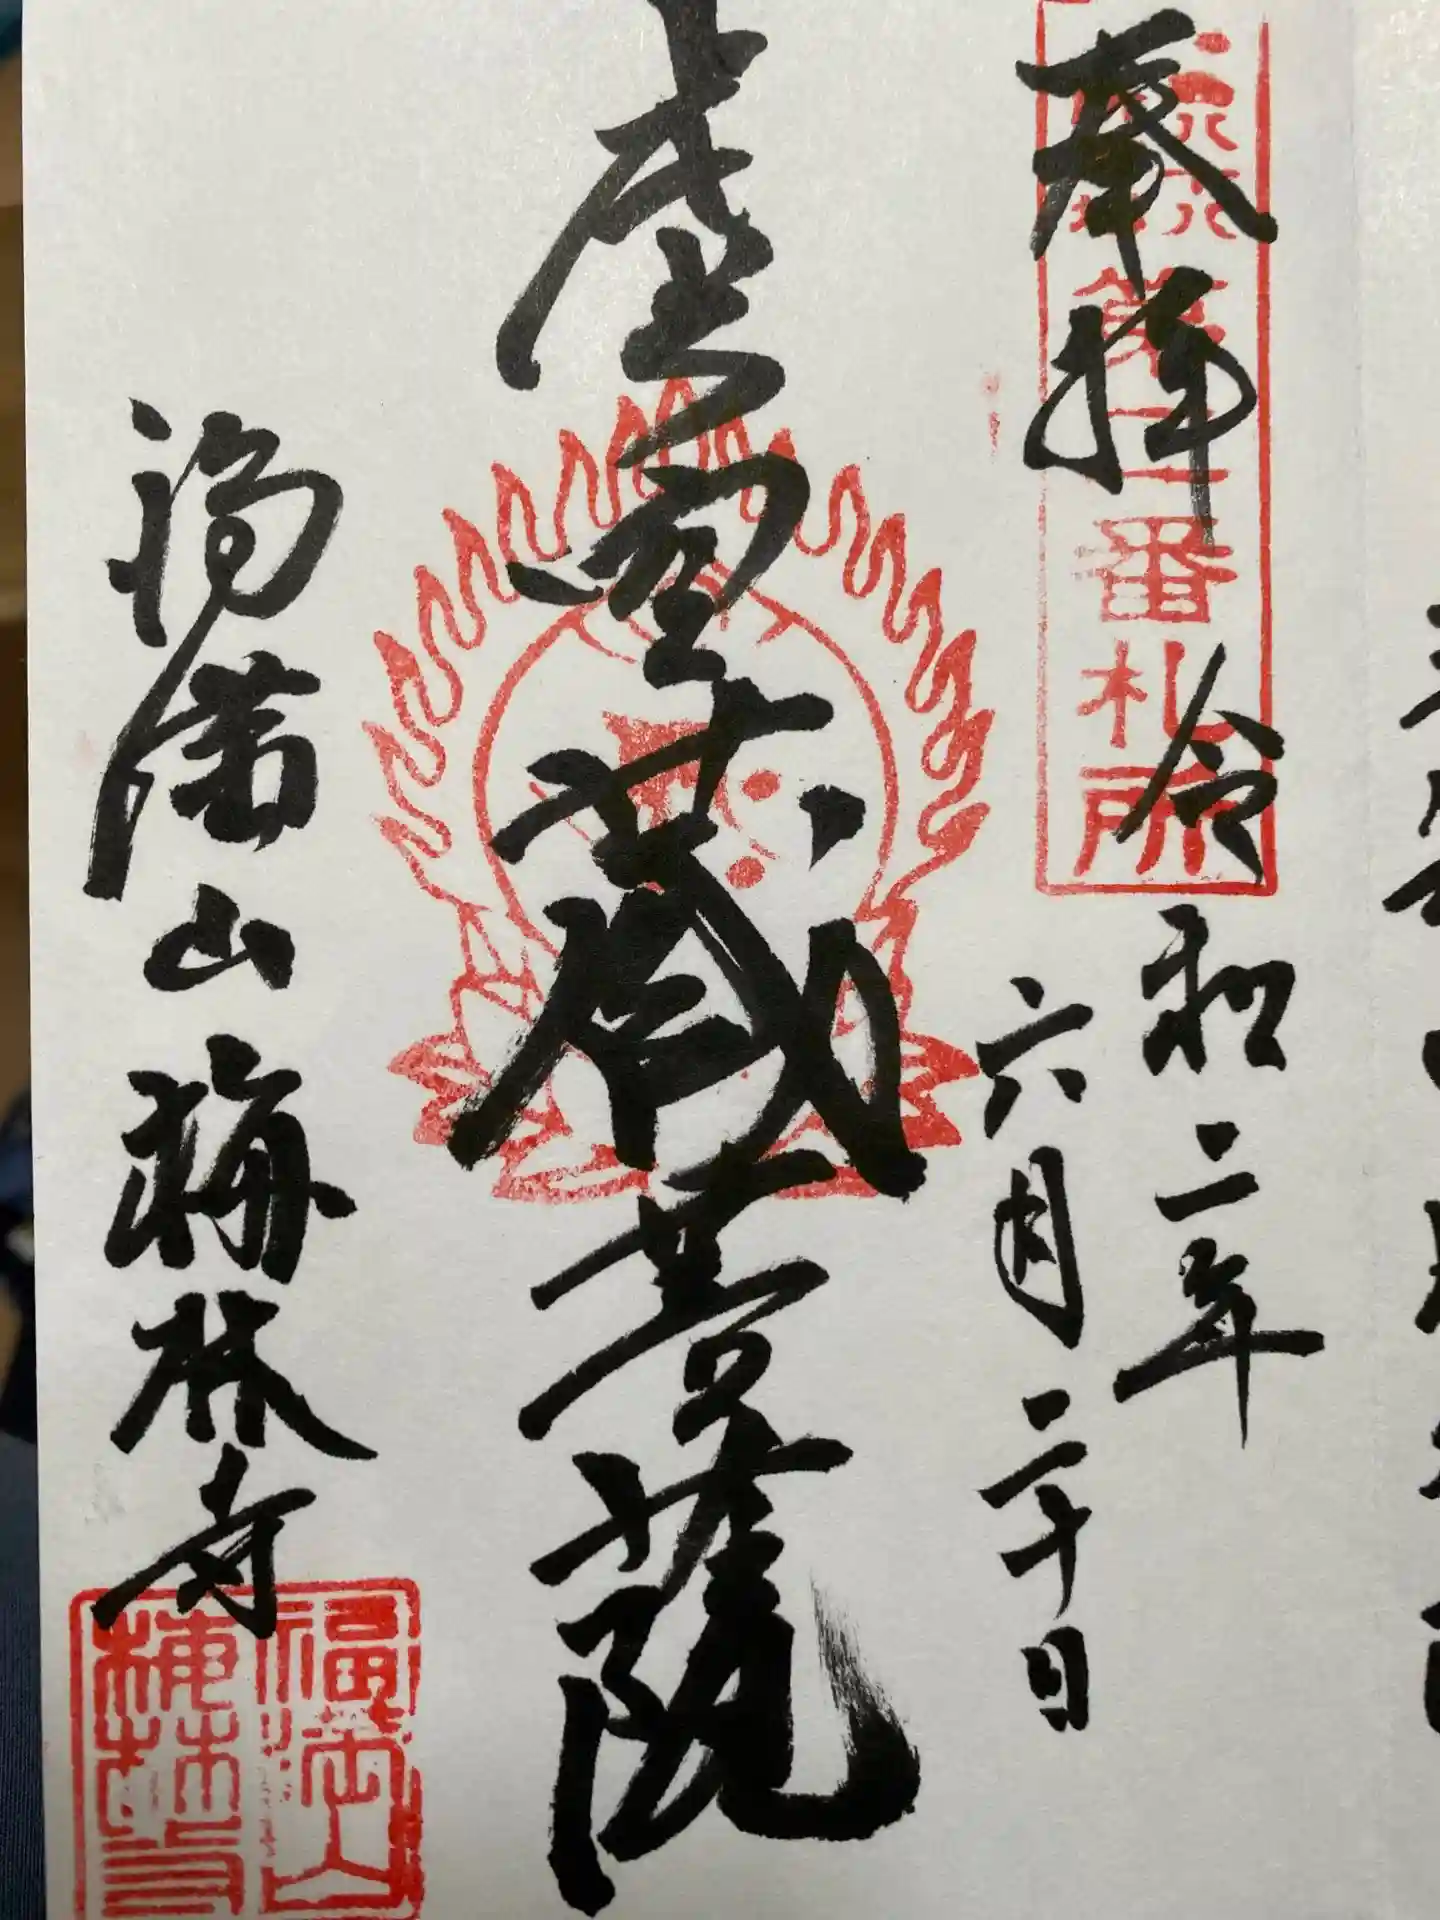 奉拝
第一番札所
令和二年
六月二十日
虚空蔵菩薩
福満山梅林寺
福満山
梅林寺